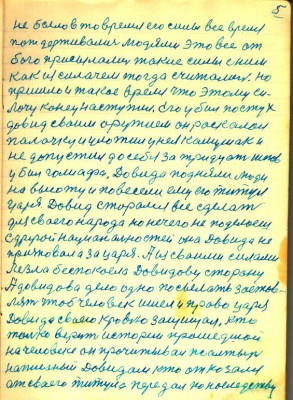 5
не было в то время его силы все время
потдерживались людями это все от
бого присылали такие силы с ним
как и силачем тогда считался. но
пришло и такое время что этому си-
лочу конец наступил. его убил постух
довид своим орутием он росколол
палочку и уложил у неи камушак и
не допустил до себя за тридцать шагов
убил голиафа. Довида подняли люди
на высоту и повесели ему его титул
царя Довид старолся все сделат
для своего народа но нечего не поделоеш
с другой национальностей она Довида не
признавала за царя. А и своими силами
лезла беспокоела Довидову сторону
А довидова дело одно посылать застов-
лят чтоб человек имел и право царя
Довида своею кровью защищал, кто
только верит истории прошедшой
на человеке он прочитывал псалтыр
написный Довидом кто отказался
от своего титула передал по последству